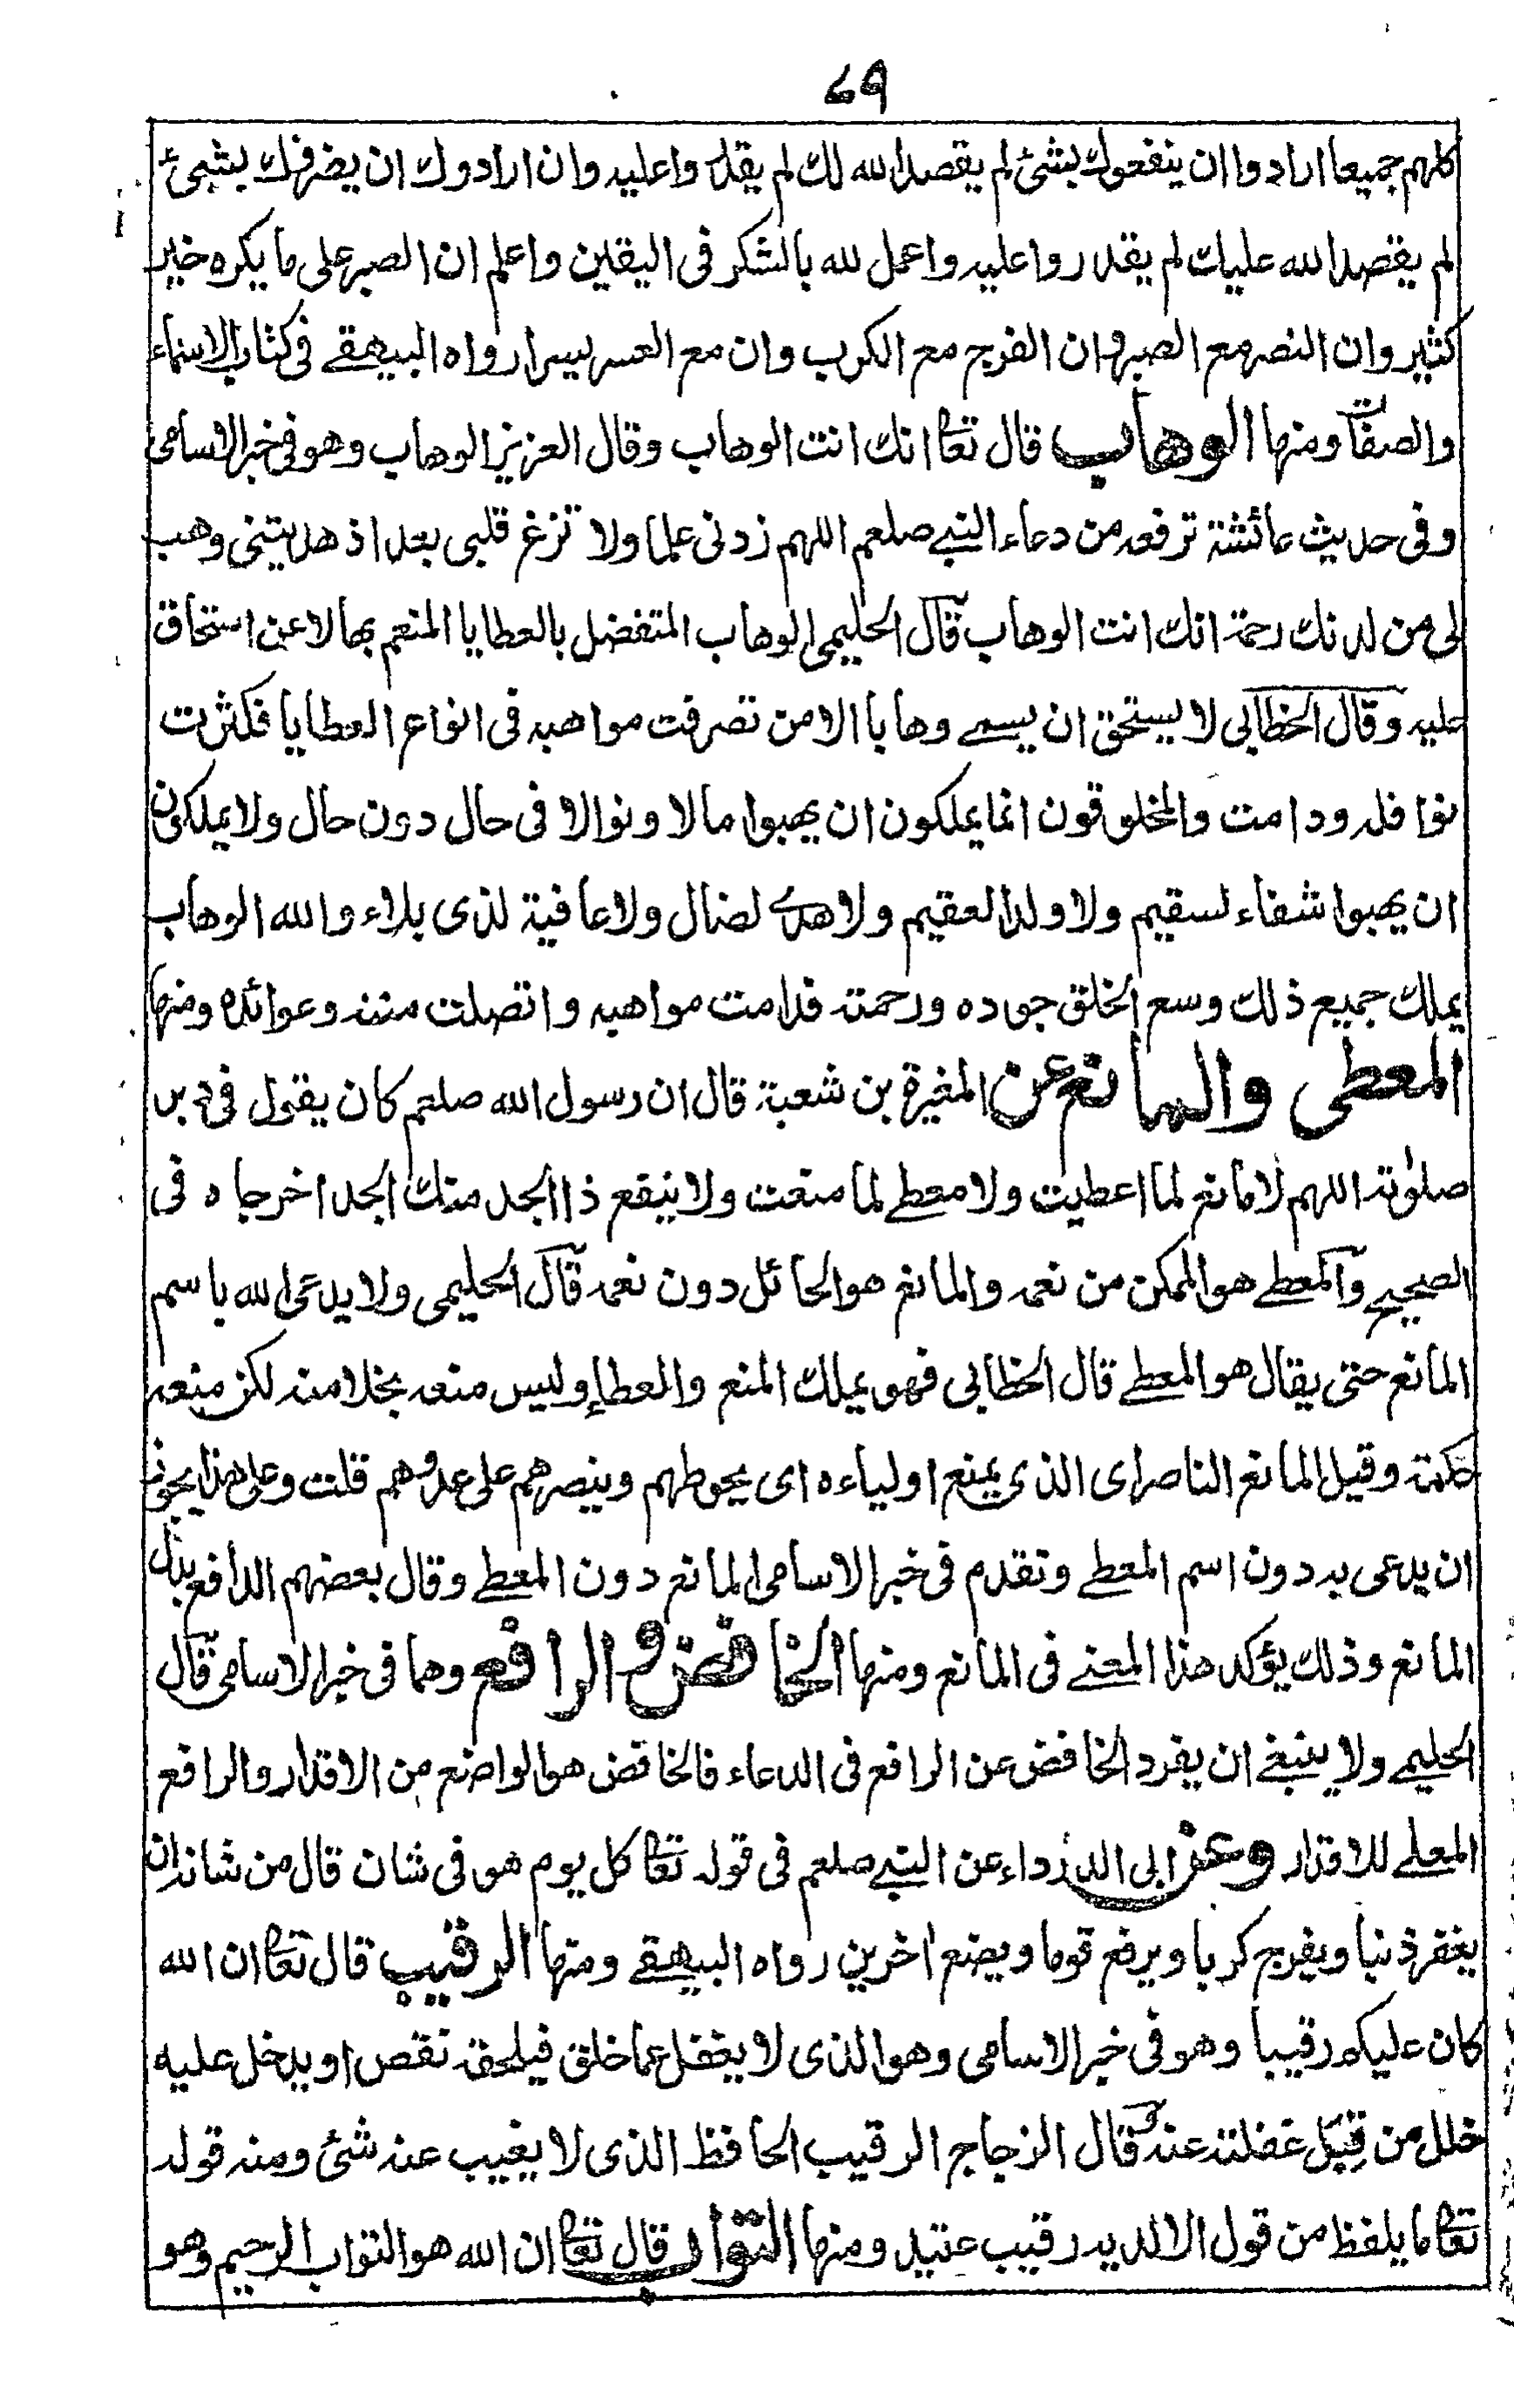 69
كلهم جميعا ارادوا ان ينفعوك بشئ لم يقصد الله لك لم يقدروا عليه وان ارادوك ان يضروك بشئ
لم يقصد الله عليك لم يقدروا عليه واعمل لله بالشكر فى اليقين واعلم ان الصبر على ما يكره خير
كثير وان النصر مع الصبر وان الفرج مع الكرب وان مع العسر يسرا رواه البيهقے فى كتاب الاسماء
والصفات ومنها الوهاب قال تعا انك انت الوهاب وقال العزيز الوهاب وهو فى خبر الاسامى
وفى حديث عائشة ترفعه من دعاء النبے صلعم اللهم زدنى علما ولا تزغ قلبى بعد اذ هديتنى وهب
لى من لدنك رحمة انك انت الوهاب قال الحليمى الوهاب المتفضل بالعطايا المنعم بها لا عن استحقاق
عليه وقال الخطابى لا يستحق ان يسمے وهابا الا من تصرفت مواهبه فى انواع العطايا فكثرت
نوافله ودامت والمخلوقون انما يملكون ان يهبوا مالا ونوالا فى حال دون حال ولا يملكون
ان يهبوا شفاء لسقيم ولا ولدا لعقيم ولا هدے لضال ولا عافية لذى بلاء والله الوهاب
يملك جميع ذلك وسع الخلق جوده ورحمته فدامت مواهبه واتصلت مننه وعوائده ومنها
المعطى والمانع عن المغيرة بن شعبة قال ان رسول الله صلعم كان يقول فى دبر
صلوته اللهم لا مانع لما اعطيت ولا معطے لما منعت ولا ينفع ذا الجد منك الجد اخرجاه فى
الصحيح والمعطے هو الممكن من نعمه والمانع هو الحائل دون نعمه قال الحليمى ولا يدعى الله باسم
المانع حتى يقال هو المعطے قال الخطابى فهو يملك المنع والعطاء وليس منعه بخلا منه لكن منعه
حكمة وقيل المانع الناصر اى الذى يمنع اولياءه اى يحوطهم وينصرهم على عدوهم قلت وعلى هذا يجوز
ان يدعى به دون اسم المعطے وتقدم فى خبر الاسامى المانع دون المعطے وقال بعضهم الدافع بدل
المانع وذلك يؤكد هذا المعنے فى المانع ومنها الخافض والرافع وهما فى خبر الاسامى قال
الحليمے ولا ينبغے ان يفرد الخافض عن الرافع فى الدعاء فالخافض هو الواضع من الاقدار والرافع
المعلے للاقدار وعن ابى الدرداء عن النبے صلعم فى قوله تعا كل يوم هو فى شان قال من شانه ان
يغفر ذنبا ويفرج كربا ويرفع قوما ويضع اخرين رواه البيهقے ومنها الرقيب قال تعا ان الله
كان عليكم رقيبا وهو فى خبر الاسامى وهو الذى لا يغفل عما خلق فيلحقه نقص او يدخل عليه
خلل من قبل غفلته عنه قال الزجاج الرقيب الحافظ الذى لا يغيب عنه شئ ومنه قوله
تعا ما يلفظ من قول الا لديه رقيب عتيد ومنها التواب قال تعا ان الله هو التواب الرحيم وهو